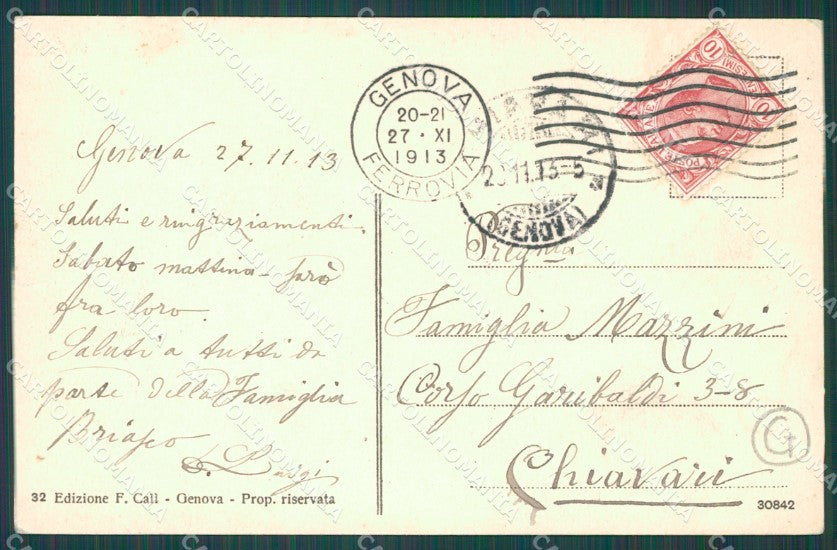 Genova 27.11.13
Saluti e ringraziamenti.
Sabato mattina sarò
fra loro.
Saluti a tutti da
parte della Famiglia
Briasco
L. Luigi
32 Edizione F. Call - Genova - Prop. riservata
GENOVA
20-21
27 · XI
1913
FERROVIA
11.13-5
(GENOVA)
10
10
CENTESIMI
POSTE ITALIANE
Pregma
Famiglia Mazzini
Corso Garibaldi 3-8
Chiavari
G
30842
CARTOLINOMANIA